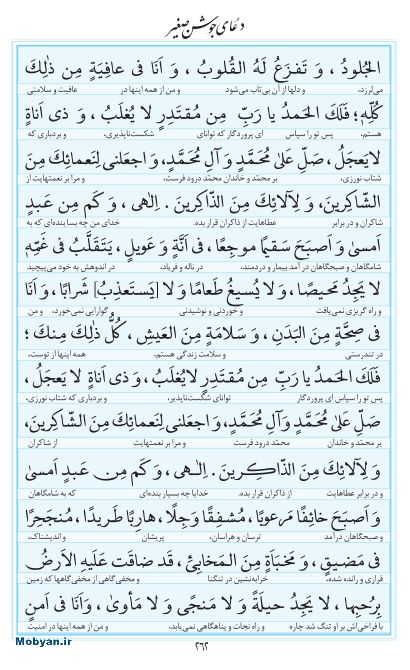 دعای جوشن صغیر
الجُلودُ ، وَ تَفزَعُ لَهُ القُلوبُ ، وَ اَنَا فى عافِيَةٍ مِن ذٰلِكَ
می‌لرزد، و دلها از آن بی‌تاب می‌شود و من از همه اینها در عافیت و سلامتی
كُلِّهِ؛ فَلَكَ الحَمدُ يا رَبِّ مِن مُقتَدِرٍ لا يُغلَبُ ، وَ ذى اَناةٍ
هستم. پس تو را سپاس ای پروردگار که توانای شکست‌ناپذیری، و بردباری که
لايَعجَلُ ، صَلِّ عَلىٰ مُحَمَّدٍ وَ آلِ مُحَمَّدٍ، وَ اجعَلنى لِنَعمائِكَ مِنَ
شتاب نورزی، بر محمّد و خاندان محمّد درود فرست، و مرا بر نعمتهایت از
الشّاكِرينَ ، وَ لِآلائِكَ مِنَ الذّاكِرينَ . اِلٰهى ، وَ كَم مِن عَبدٍ
شاکران و در برابر عطاهایت از ذاکران قرار بده. خدای من چه بسا بنده‌ای که به
اَمسىٰ وَ اَصبَحَ سَقيمًا موجِعًا ، فى اَنَّةٍ وَ عَويلٍ ، يَتَقَلَّبُ فى غَمِّهِ
شامگاهان و صبحگاهان در آمد بیمار و دردمند، در ناله و فریاد، در اندوهش به خود می‌پیچید
لا يَجِدُ مَحيصًا ، وَ لا يُسيغُ طَعامًا وَ لا [يَستَعذِبُ] شَرابًا ، وَ اَنَا
و راه گریزی نمی‌یافت و خوردنی و نوشیدنی گوارایی نمی‌خورد، و من
فى صِحَّةٍ مِنَ البَدَنِ ، وَ سَلامَةٍ مِنَ العَيشِ ، كُلُّ ذٰلِكَ مِنكَ ؛
در تندرستی و سلامت زندگی هستم، همه اینها از توست،
فَلَكَ الحَمدُ يا رَبِّ مِن مُقتَدِرٍ لايُغلَبُ ، وَ ذى اَناةٍ لا يَعجَلُ ،
پس تو را سپاس ای پروردگار توانای شکست‌ناپذیر، و بردباری که شتاب نورزی،
صَلِّ عَلىٰ مُحَمَّدٍ وَ آلِ مُحَمَّدٍ، وَ اجعَلنى لِنَعمائِكَ مِنَ الشّاكِرينَ،
بر محمّد و خاندان محمّد درود فرست و مرا بر نعمتهایت از شاکران
وَ لِآلائِكَ مِنَ الذّاكِرينَ . اِلٰهى ، وَ كَم مِن عَبدٍ اَمسىٰ
و در برابر عطاهایت از ذاکران قرار بده. خدایا چه بسیار بنده‌ای که به شامگاهان
وَ اَصبَحَ خائِفًا مَرعوبًا ، مُشفِقًا وَجِلًا ، هارِبًا طَريدًا ، مُنجَحِرًا
و صبحگاهان درآمد ترسان و هراسان، پریشان و اندیشناک،
فى مَضيقٍ ، وَ مَخبَاَةٍ مِنَ المَخابِئِ ، قَد ضاقَت عَلَيهِ الاَرضُ
فراری و رانده شده، خزیده‌نشین در تنگنا و مخفی‌گاهی از مخفی گاهها که زمین
بِرُحبِها ، لا يَجِدُ حيلَةً وَ لا مَنجًى وَ لا مَأوىً ، وَ اَنَا فى اَمنٍ
با فراخی‌اش بر او تنگ شد چاره و راه نجات و پناهگاهی نمی‌یابد، و من از همه اینها در امنیت
۲۶۲
Mobyan.ir